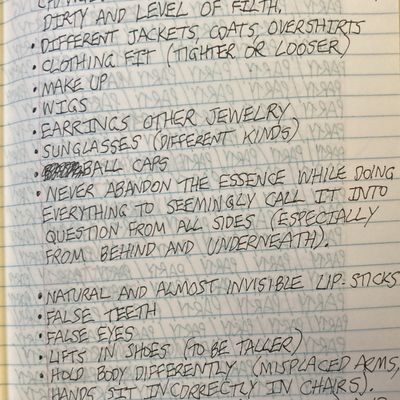 DIRTY AND LEVEL OF FILTH.
• DIFFERENT JACKETS, COATS, OVERSHIRTS
• CLOTHING FIT (TIGHTER OR LOOSER)
• MAKE UP
• WIGS
• EARRINGS OTHER JEWELRY
• SUNGLASSES (DIFFERENT KINDS)
• BALL CAPS
• NEVER ABANDON THE ESSENCE WHILE DOING
EVERYTHING TO SEEMINGLY CALL IT INTO
QUESTION FROM ALL SIDES (ESPECIALLY
FROM BEHIND AND UNDERNEATH).
• NATURAL AND ALMOST INVISIBLE LIP-STICKS
• FALSE TEETH
• FALSE EYES
• LIFTS IN SHOES (TO BE TALLER)
• HOLD BODY DIFFERENTLY (MISPLACED ARMS,
HANDS SIT INCORRECTLY IN CHAIRS).